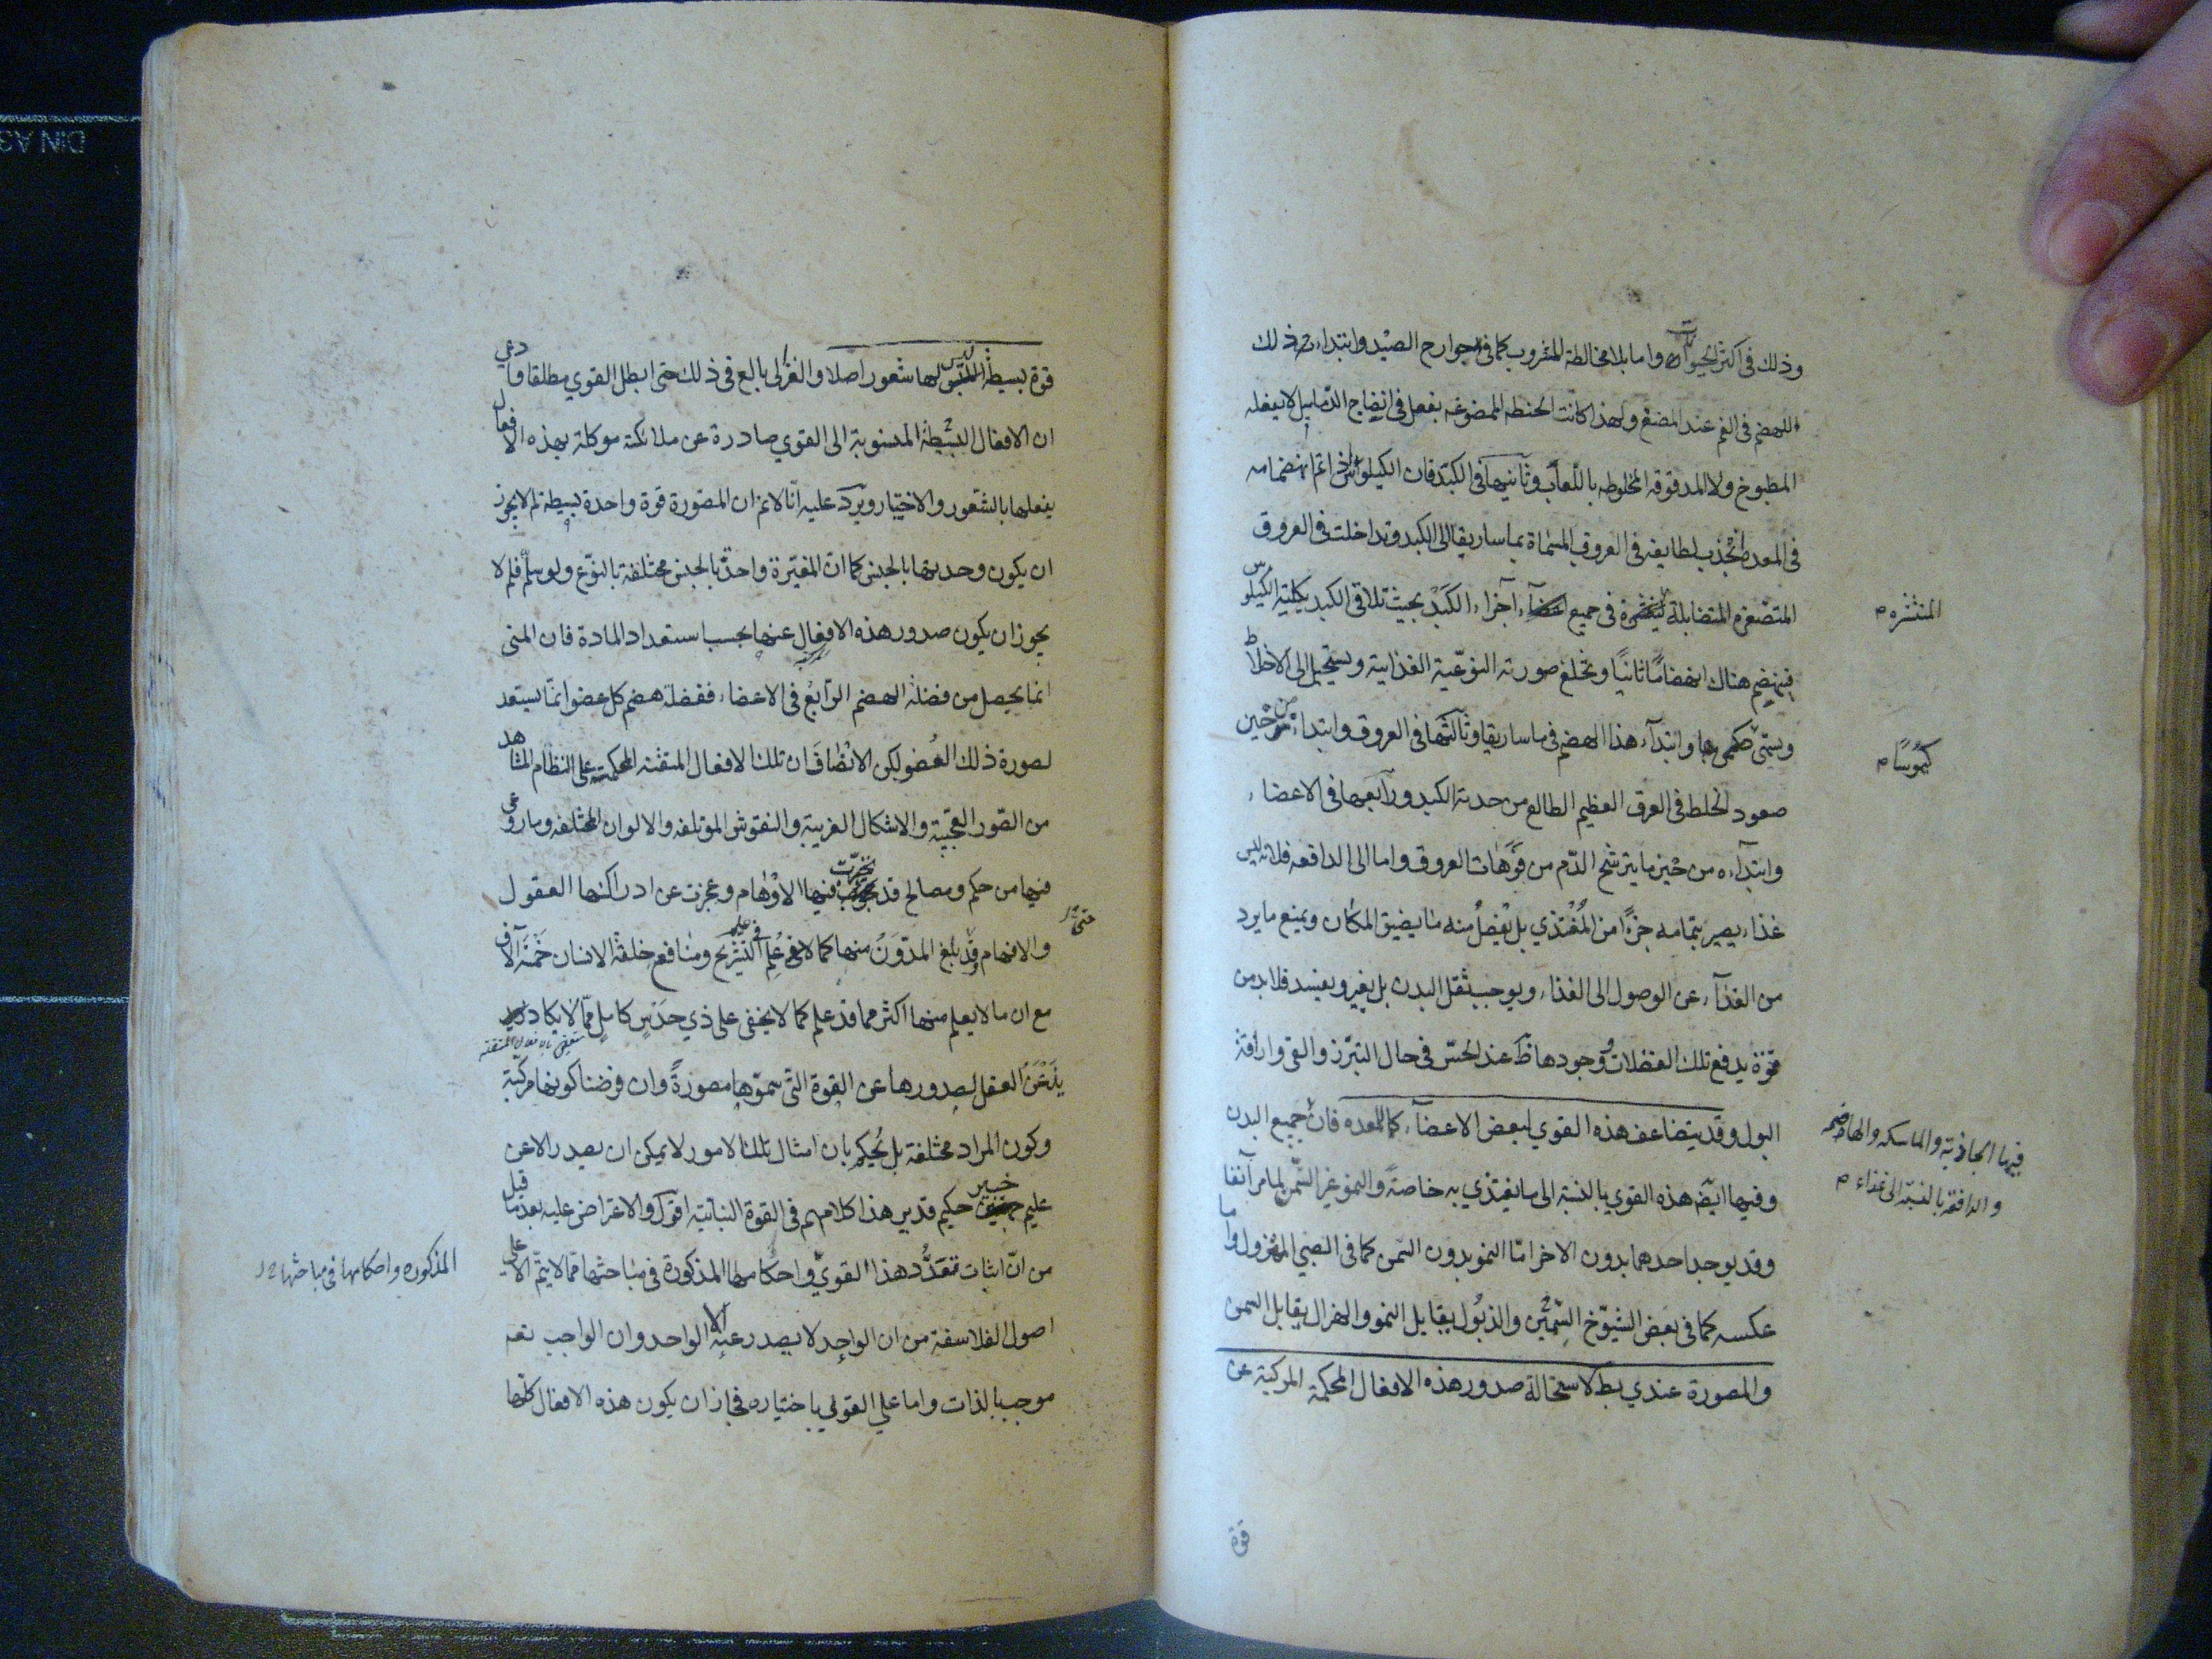 وذلك فى اكثر الحيوانات واما بلا مخالطة المشروب كما فى جوارح الصيد وابتداء ذلك
الهضم فى الفم عند المضغ ولهذا كانت الحنطه الممضوغه يفعل فى انضاج الدماميل لا يفعله
المطبوخ ولا المدقوقه المخلوطه باللعاب وثانيها فى الكبد فان الكيلوس اذا تم انهضامه
فى المعده انجذب لطايفه فى العروق المسماة بماساريقا الى الكبد وتداخلت فى العروق
المتصغره المتضايلة المنتشره فى جميع اجزاء الكبد بحيث تلاقى الكبد بكليته الكيلوس
فينهضم هناك انهضامًا ثانيًا وتخلع صورته النوعية الغذائية ويستحيل الى الاخلاط
ويسمى كيموسًا وابتداء هذا الهضم فى ماساريقا وثالثها فى العروق وابتداءه من حين
صعود الخلط فى العرق العظيم الطالع من حدبة الكبد ورابعها فى الاعضاء
وابتداءه من حين ما يترشح الدم من فوهات العروق واما الى الدافعه فلانه ليس
غذاء يصير بتمامه جزءًا من المغتذي بل يفضل منه ما يضيق المكان ويمنع ما يرد
من الغذاء عن الوصول الى الغذاء ويوجب ثقل البدن بل يغير ويفسد فلا بد من
قوة يدفع تلك الفضلات ووجودها ظ عند الحس فى حال التبرز والقى واراقة
البول وقد يتضاعف هذه القوي لبعض الاعضاء كما للمعده فان جميع البدن
وفيها ايض هذه القوي بالنسبة الى ما يغتذي به خاصةً والنمو غير السمن لما مر آنفا
وقد يوجد احدهما بدون الاخر اما النمو بدون السمن كما فى الصبي المهزول واما
عكسه كما فى بعض الشيوخ السمين والذبول يقابل النمو والهزال يقابل السمن
والمصورة عندي بط لاستحالة صدور هذه الافعال المحكمة المركبة عن
قوة
المنتشره م
كيموسًا م
فيها الجاذبة والماسكه والهاضمه
والدافعة بالنسبة الى غذاء م
قوة بسيطة ليس لها شعور اصلا والغزالى بالغ فى ذلك حتى ابطل القوي مطلقا وادعى
ان الافعال البسيطة المنسوبة الى القوي صادرة عن ملائكة موكلة بهذه الافعال
يفعلها بالشعور والاختيار ويرد عليه انا لانم ان المصورة قوة واحدة بسيطة لم لا يجوز
ان يكون وحدتها بالجنس كما ان المغيرة واحدة بالجنس مختلفة بالنوع ولو سلم فلم لا
يجوز ان يكون صدور هذه الافعال عنها بحسب استعداد المادة فان المنى
انما يحصل من فضلة الهضم الرابع فى الاعضاء ففضلة هضم كل عضو انما يستعد
لصورة ذلك العضو لكن الانصاف ان تلك الافعال المتقنه المحكمة على النظام المشاهد
من الصور العجيبة والاشكال الغريبة والنقوش الموتلفه والالوان المختلفه وما روعى
فيها من حكم ومصالح قد تحيرت فيها الاوهام وعجزت عن ادراكها العقول
والافهام وقد بلغ المدون منها كما فى علم التشريح ومنافع خلقة الانسان خمسة آلاف
مع ان ما لا يعلم منها اكثر مما قد علم كما لا يخفى على ذي حدس كامل مما لا يكاد
يذعن العقل بصدورها عن القوة التى سموها مصورةً وان فرضنا كونها مركبة
وكون المراد مختلفة بل يحكم بان امثال تلك الامور لا يمكن ان يصدر الا عن
عليم خبير حكيم قدير هذا كلامهم فى القوة النباتية اقول والاعتراض عليه بعد ما قيل
من ان اثبات تعدد هذا القوي واحكامها المذكورة فى مباحثها مما لا يتم الا على
اصول الفلاسفة من ان الواحد لا يصدر عنه الا الواحد وان الواجب تعه
موجب بالذات واما على القول باختياره فجاز ان يكون هذه الافعال كلها
المذكوره واحكامها فى مباحثها